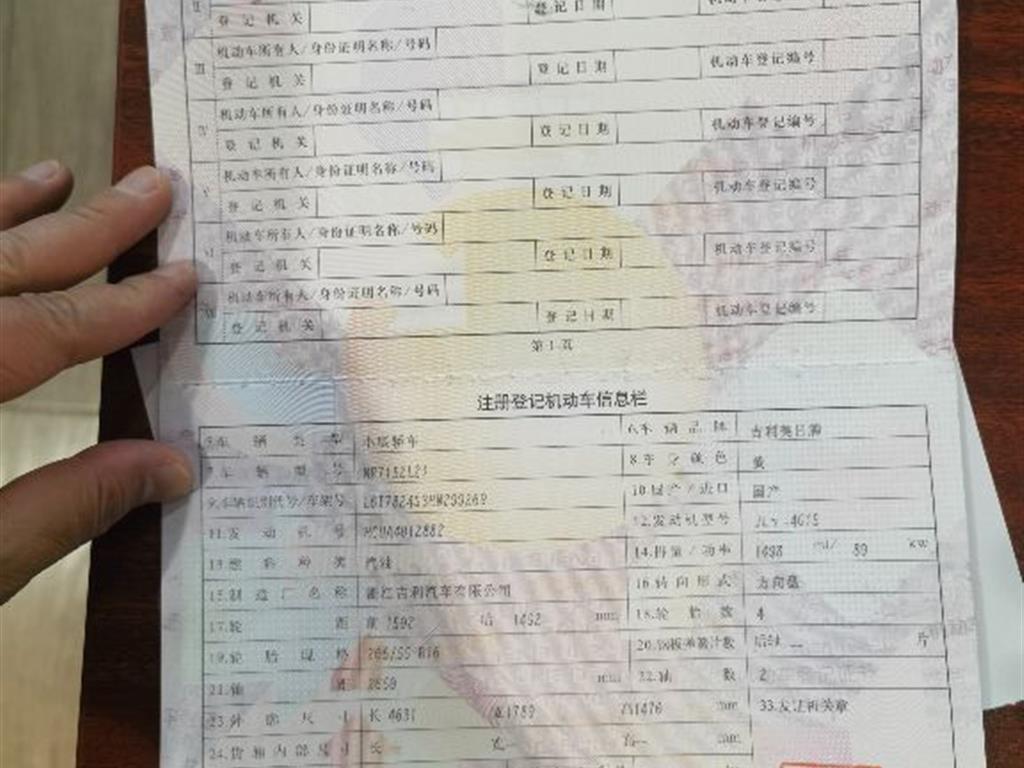 II 登记机关 登记日期
III 机动车所有人/身份证明名称/号码
登记机关 登记日期 机动车登记编号
IV 机动车所有人/身份证明名称/号码
登记机关 登记日期 机动车登记编号
V 机动车所有人/身份证明名称/号码
登记机关 登记日期 机动车登记编号
VI 机动车所有人/身份证明名称/号码
登记机关 登记日期 机动车登记编号
VII 机动车所有人/身份证明名称/号码
登记机关 登记日期 机动车登记编号
第1页
注册登记机动车信息栏
5.车辆类型 小型轿车 6.车辆品牌 吉利美日牌
7.车辆型号 8.车身颜色 黄
9.车辆识别代号/车架号 10.国产/进口 国产
11.发动机号 12.发动机型号
13.燃料种类 汽油 14.排量/功率 1498 ml/ 80 kw
15.制造厂名称 浙江吉利汽车有限公司 16.转向形式 方向盘
17.轮距 前 1502 后 1492 mm 18.轮胎数 4
19.轮胎规格 205/55 R16 20.钢板弹簧片数 后轴 -- 片
21.轴距 2650 mm 22.轴数 2
23.外廓尺寸 长 4631 宽 1789 高 1476 mm 33.发证机关章
24.货厢内部尺寸 长 宽-- 高-- mm